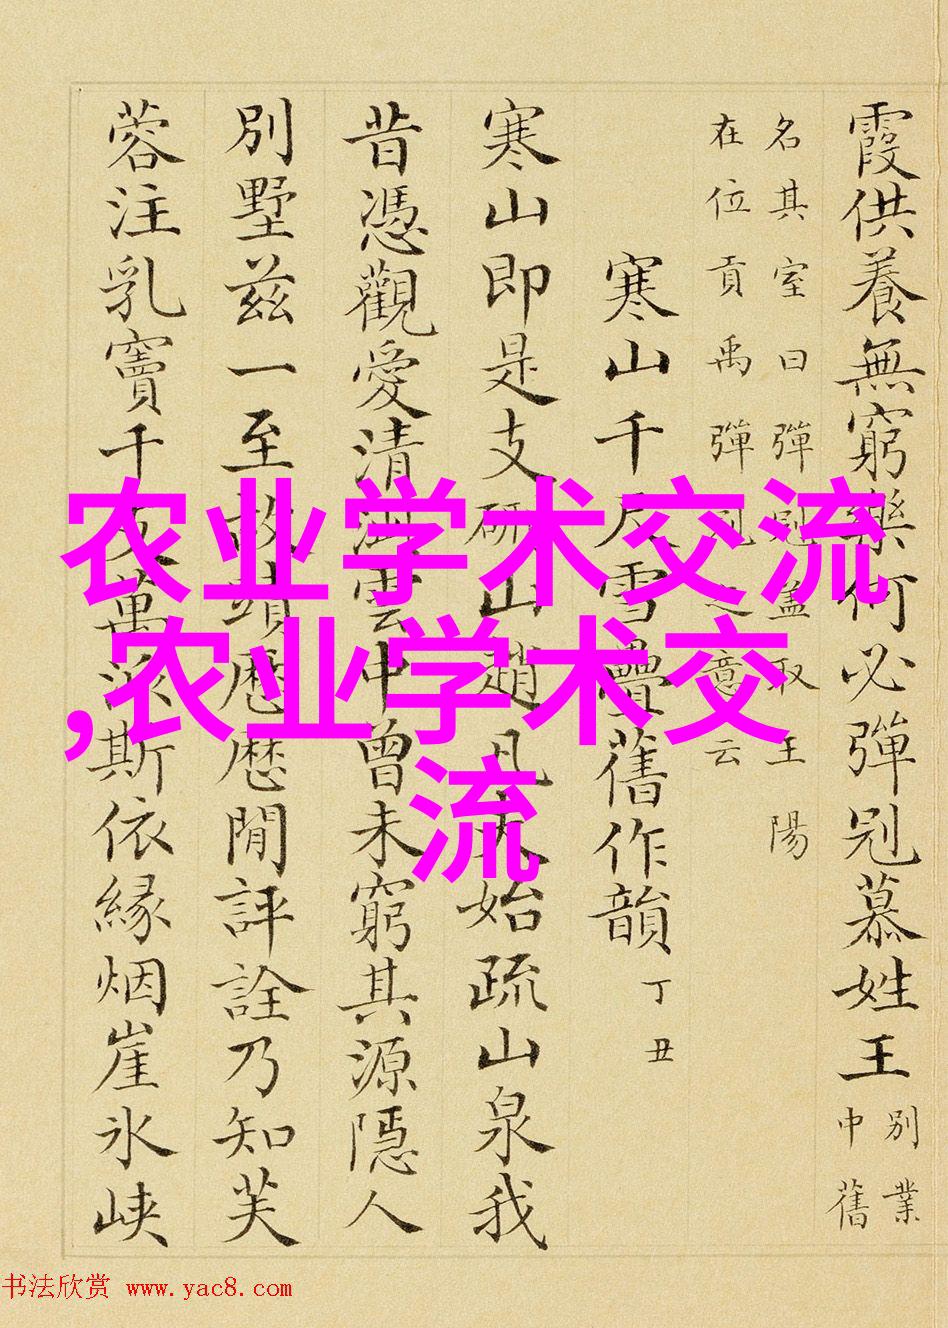 霞供養無窮樂何必彈冠慕姓王
別業
中舊
名其室曰彈冠盖取王陽
在位貢禹彈冠之意云
寒山千尺雪疊舊作韻 丁丑
寒山即是支研山趙凡夫始疏山泉我
昔憑觀愛清雲中曾未窮其源隱人
別墅兹一至故蹟歷歷閒評詮乃知芙
蓉注乳竇千支萬派斯依緣烟崖氷峡
农业学术交流
,农业学术交
流
书法欣赏 www.yac8.com